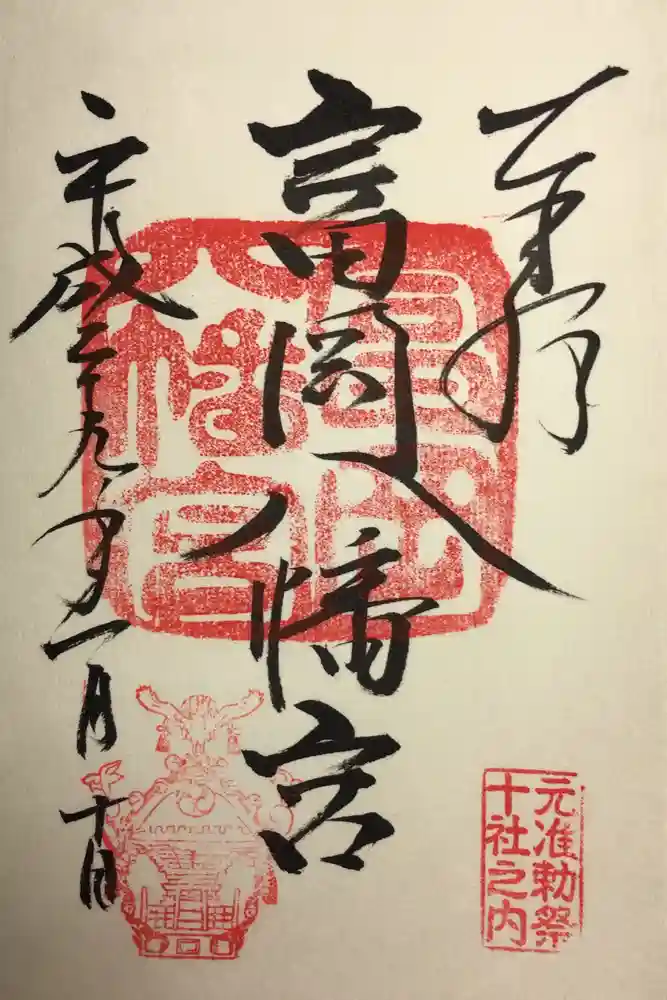 奉拝
元准勅祭
十社之内
富岡八幡宮
富岡
八幡宮
平成二十九年一月十日